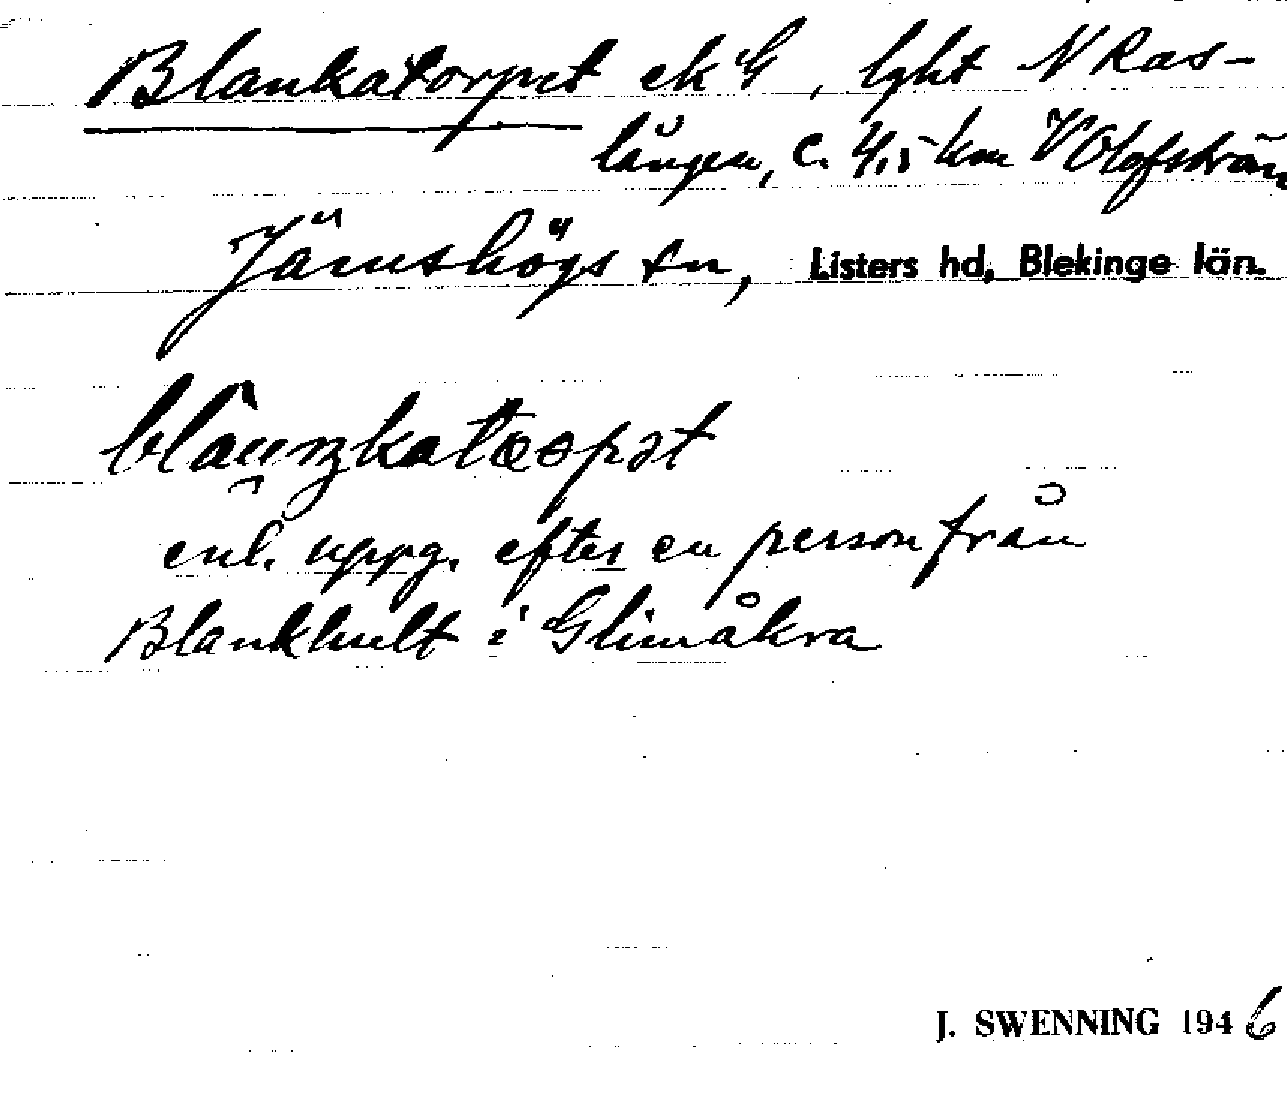 Blankatorpet ek G, lght N Ras-
lången, c. 4,5 km V Olofström
Jämshögs sn, Listers hd, Blekinge län.
enl. uppg. efter en person från
Blankhult i Glimåkra
J. SWENNING 1946